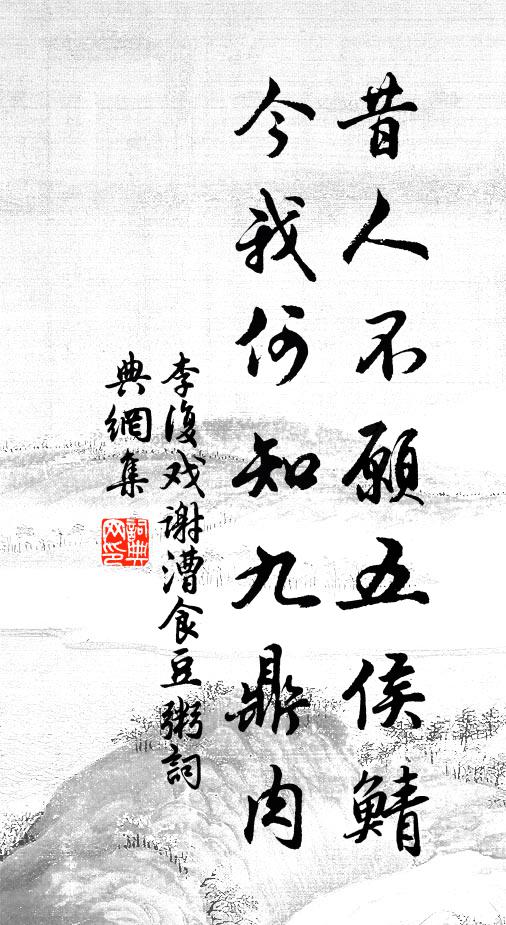 昔人不願五侯鯖
今我何知九鼎肉
李復戏謝漕食豆粥詞
典網集
詞典
网印